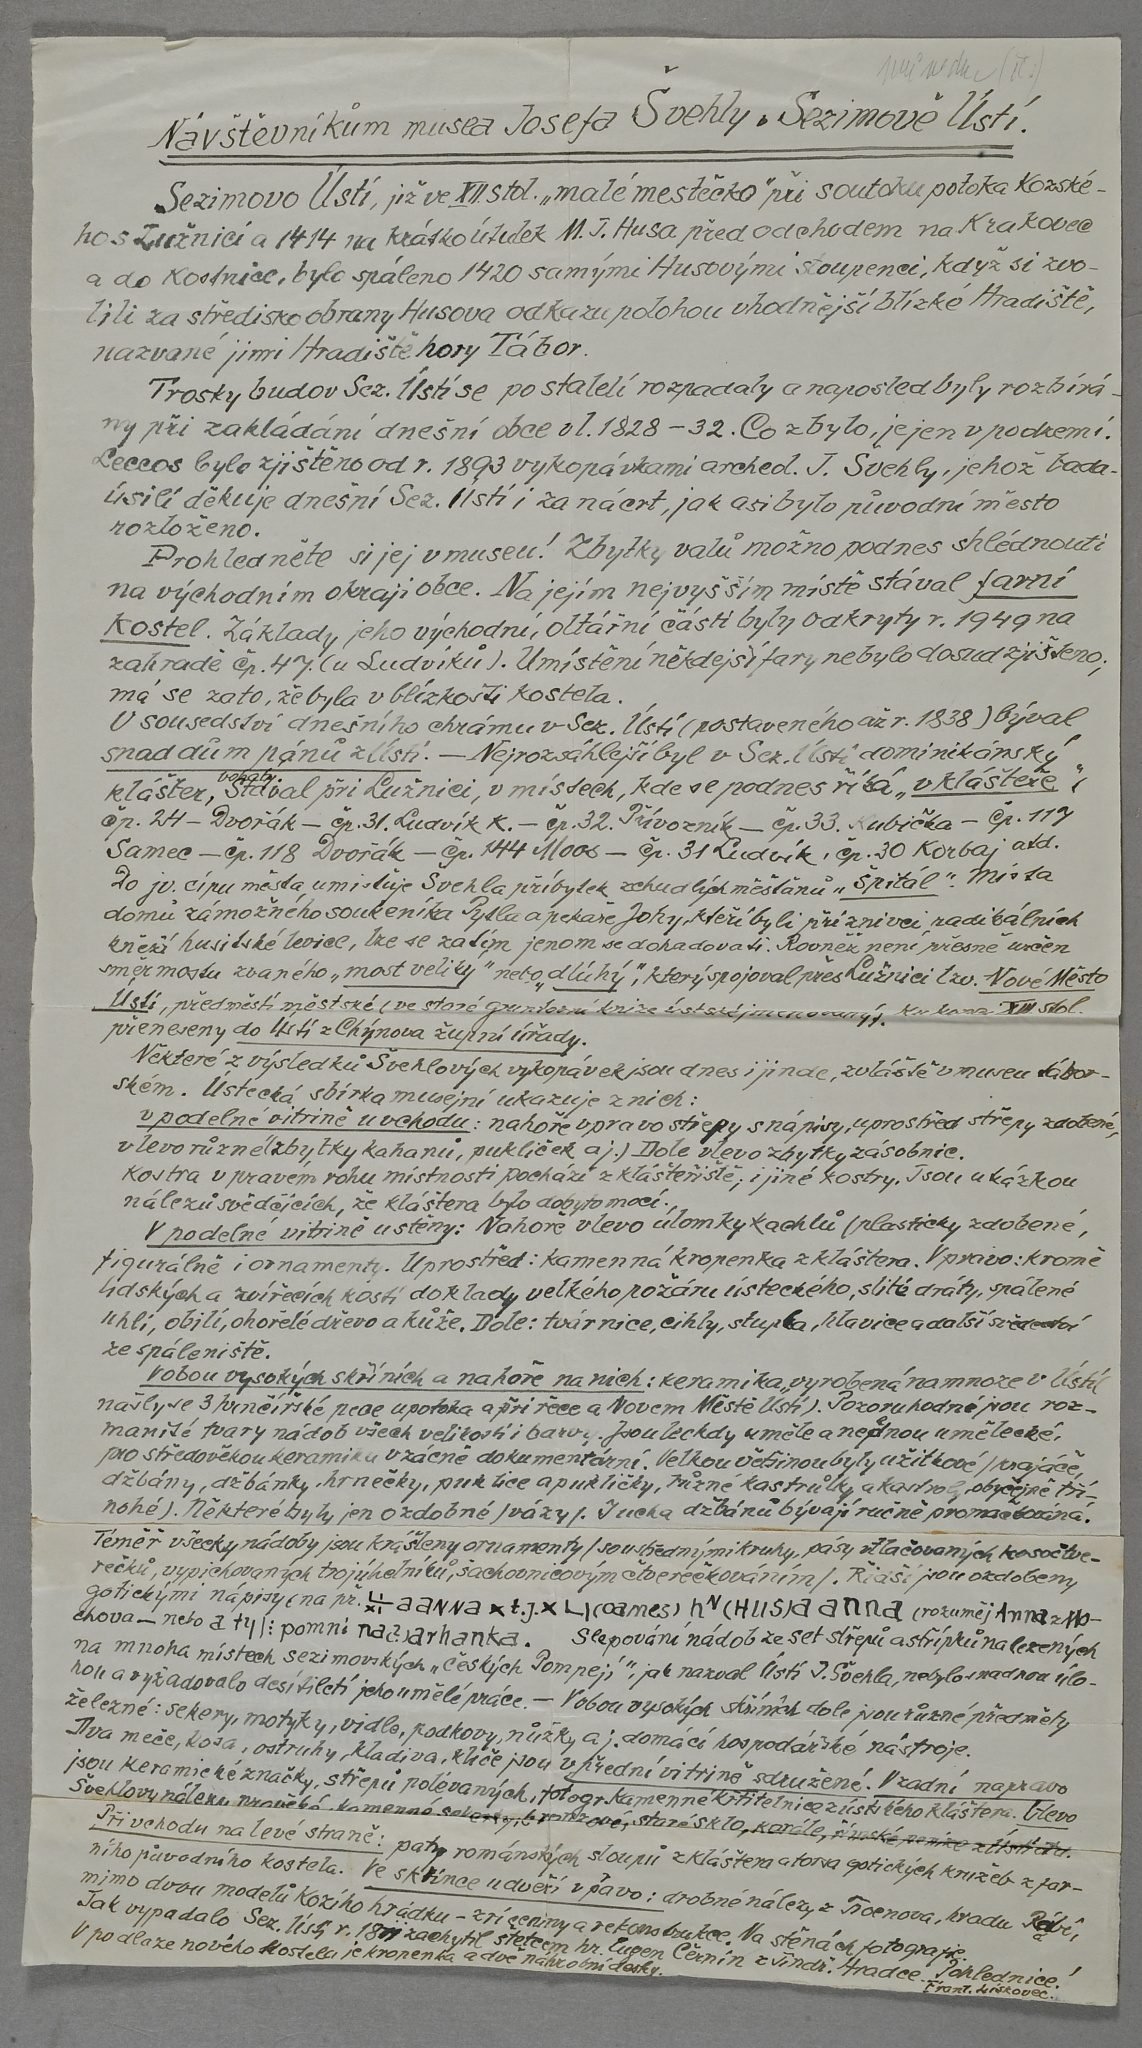 Návštěvníkům musea Josefa Švehly v Sezimově Ústí.
Sezimovo Ústí, již ve XII. stol. „malé městečko“ při soutoku potoka Kozské-
ho s Lužnicí a 1414 na krátko útulek M. J. Husa před odchodem na Krakovec
a do Kostnice, bylo spáleno 1420 samými Husovými stoupenci, když si zvo-
lili za středisko obrany Husova odkazu polohou vhodnější blízké Hradiště,
nazvané jimi Hradiště hory Tábor.
Trosky budov Sez. Ústí se po staletí rozpadaly a naposled byly rozbírá-
ny při zakládání dnešní obce v l. 1828-32. Co zbylo, je jen v podzemí.
Leccos bylo zjištěno od r. 1893 vykopávkami archeol. J. Švehly, jehož bada-
úsilí děkuje dnešní Sez. Ústí i za náčrt, jak asi bylo původní město
rozloženo.
Prohledněte si jej v museu! Zbytky valů možno podnes shlédnouti
na východním okraji obce. Na jejím nejvyšším místě stával farní
kostel. Základy jeho východní, oltářní části byly odkryty r. 1949 na
zahradě čp. 47 (u Ludvíků). Umístění někdejší fary nebylo dosud zjištěno;
má se zato, že byla v blízkosti kostela.
V sousedství dnešního chrámu v Sez. Ústí (postaveného až r. 1838) býval
snad dům pánů z Ústí. — Nejrozsáhlejší byl v Sez. Ústí dominikánský
bohatý
klášter, stával při Lužnici, v místech, kde se podnes říká „v klášteře“;
čp. 24 - Dvořák - čp. 31. Ludvík K. - čp. 32. Přívozník - čp. 33. Kubička - čp. 117
Samec - čp. 118 Dvořák - čp. 144 Moos - čp. 31 Ludvík, čp. 30 Korbaj atd.
Do jv. cípu města umisťuje Švehla příbytek zchudlých měšťanů „špitál“. Místa
domů zámožného soukeníka Pytla a pekaře Johy, kteří byli příznivci radikálních
kněží husitské levice, lze se zatím jenom se dohadovati. Rovněž není přesně určen
směr mostu zvaného „most veliký“ nebo „dlúhý“, který spojoval přes Lužnici tzv. Nové Město
Ústí, předměstí městské (ve staré knize XIII stol.
přeneseny do Ústí z Chýnova župní úřady.
Některé z výsledků Švehlových vykopávek jsou dnes i jinde, zvláště v museu tábor-
ském. Ústecká sbírka musejní ukazuje z nich:
v podelné vitrině u vchodu: nahoře vpravo střepy s nápisy, uprostřed střepy zdobené,
vlevo různé (zbytky kahanů, pukliček aj.) Dole vlevo zbytky zásobnic.
Kostra v pravém rohu místnosti pochází z klášteřiště, i jiné kostry. Jsou ukázkou
nálezů svědčících, že kláštera bylo dobyto mocí.
V podelné vitrině u stěny: Nahoře vlevo úlomky kachlů (plasticky zdobené,
figurálně i ornamenty. Uprostřed: kamenná kropenka z kláštera. Vpravo: kromě
lidských a zvířecích kostí doklady velkého požáru ústeckého, slité dráty, spálené
uhlí, obilí, ohořelé dřevo a kůže. Dole: tvárnice, cihly, stupka, hlavice a další
ze spáleniště.
V obou vysokých skříních a nahoře na nich: keramika, vyrobená namnoze v Ústí (
našly se 3 hrnčířské pece u potoka a při řece a Novem Městě Ústí). Pozoruhodné jsou roz-
manité tvary nádob všech velikostí i barvy. Jsou leckdy uměle a umělecké,
pro středověkou keramiku vzácně dokumentární. Velkou většinou byly užitkové (krajáče,
džbány, džbánky, hrnečky, puklice a pukličky, různé kastrůlky a kastroly, obyčejně tří-
nohé). Některé byly jen ozdobné (vázy). I ucha džbánů bývají ručně promačkována.
Téměř všecky nádoby jsou krášleny ornamenty (soustřednými kruhy, pásy vtlačovaných kosočtve-
rečků, vypichovaných trojúhelníků, šachovnicovým čtverečkováním). Řidší jsou ozdobeny
gotickými nápisy (na př. aANNA x t.j. x (James) hN (HUS) a anna (rozuměj Anna z Mo-
chova - nebo a ty: pomni nad Jarhanka. Slepování nádob ze set střepů a střípků nalezených
na mnoha místech sezimovských „českých Pompejí“, jak nazval Ústí J. Švehla, nebylo snadnou úlo-
hou a vyžadovalo desítiletí jeho umělé práce. — V obou vysokých skříních dole jsou různé předměty
železné: sekery, motyky, vidle, podkovy, nůžky aj. domácí hospodářské nástroje.
Dva meče, kosa, ostruhy, kladiva, klíče jsou v přední vitrině sdružené. V zadní napravo
jsou keramické značky, střepů polévaných, fotogr. kamenné křtitelnice z ústského kláštera. Vlevo
Švehlovy nálezy pravěké, kamenné sekerky, bronzové, staré sklo, korále,
Při vchodu na levé straně: paty románských sloupů z kláštera a torsa gotických kružeb z far-
ního původního kostela. Ve skřínce u dveří vpravo: drobné nálezy z Trocnova, hradu Rábí,
mimo dvou modelů Kozího hrádku - zříceniny a rekonstrukce. Na stěnách fotografie.
Jak vypadalo Sez. Ústí r. zachytil štětcem hr. Eugen Černín z Jindř. Hradce. Pohlednice!
V podlaze nového kostela je kropenka a dvě náhrobní desky.
Frant. Lískovec.